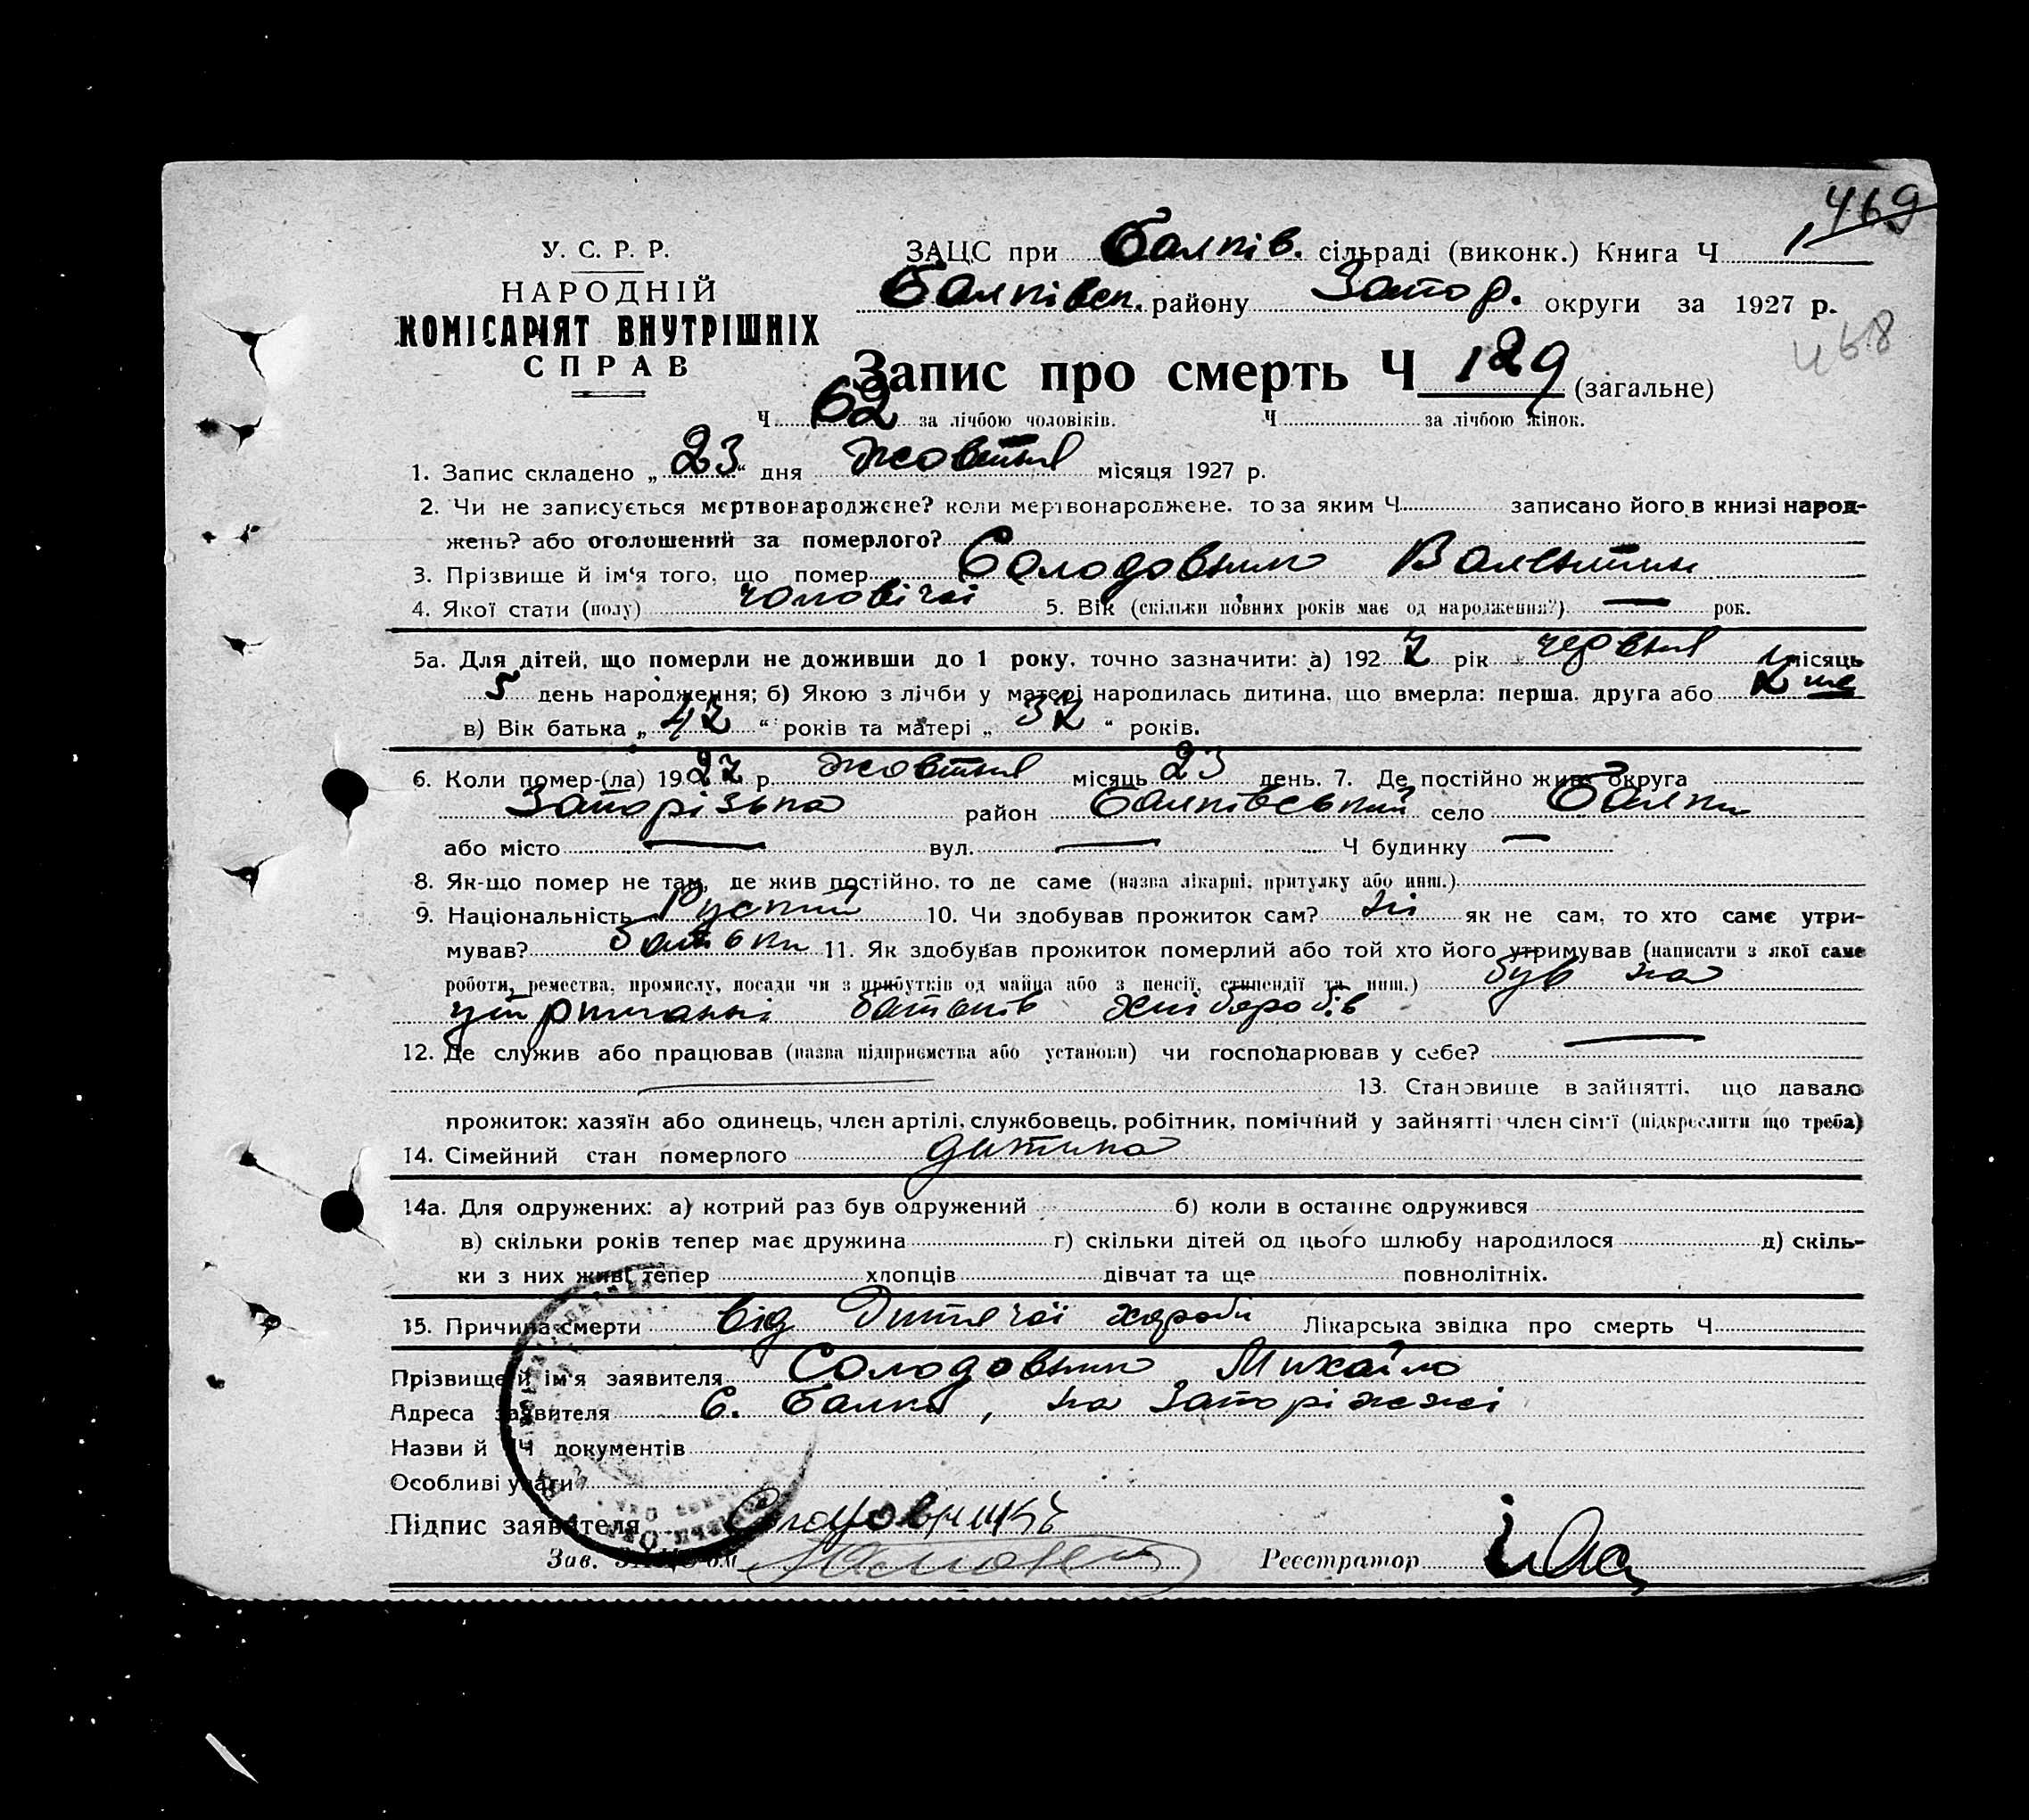 469
У. С. Р. Р.
НАРОДНІЙ
КОМІСАРІЯТ ВНУТРІШНІХ
СПРАВ
ЗАЦС при Балків. сільраді (виконк.) Книга Ч 1
Балківськ. району Запор. округи за 1927 р.
468
Запис про смерть Ч 129 (загальне)
Ч 62 за лічбою чоловіків. Ч за лічбою жінок.
1. Запис складено „ 23 “ дня жовтня місяця 1927 р.
2. Чи не записується мертвонароджене? коли мертвонароджене, то за яким Ч записано його в книзі народ-
жень? або оголошений за померлого?
3. Прізвище й ім‘я того, що помер Солодовник Валентин
4. Якої стати (полу) чоловічої 5. Вік (скільки повних років має од народження?) — рок.
5а. Для дітей, що померли не доживши до 1 року, точно зазначити: а) 192 7 рік червня місяць
5 день народження; б) Якою з лічби у матері народилась дитина, що вмерла: перша, друга або
в) Вік батька „ 42 “ років та матері „ 32 “ років.
6. Коли помер-(ла) 1927 р. жовтня місяць 23 день. 7. Де постійно жив: округа
Запорізька район Балківський село Балки
або місто — вул. — Ч будинку —
8. Як-що помер не там, де жив постійно, то де саме (назва лікарні, притулку або инш.)
9. Національність Руський 10. Чи здобував прожиток сам? ні як не сам, то хто саме утри-
мував? батьки 11. Як здобував прожиток померлий або той хто його утримував (написати з якої саме
роботи, ремества, промислу, посади чи з прибутків од майна або з пенсії, стипендії та инш.) був на
утриманні батьків хліборобів
12. Де служив або працював (назва підприємства або установи) чи господарював у себе? —
— 13. Становище в зайнятті, що давало
прожиток: хазяїн або одинець, член артілі, службовець, робітник, помічний у зайнятті член сім‘ї (підкреслити що треба)
14. Сімейний стан померлого дитина
14а. Для одружених: а) котрий раз був одружений б) коли в останнє одружився
в) скільки років тепер має дружина г) скільки дітей од цього шлюбу народилося д) скіль-
ки з них живі тепер хлопців дівчат та ще повнолітніх.
15. Причина смерти від Дитячої хороби Лікарська звідка про смерть Ч
Прізвище й ім‘я заявителя Солодовник Михайло
Адреса заявителя с. Балки, на Запоріжжі
Назви й Ч документів
Особливі уваги
Підпис заявителя
Зав. ЗАЦС‘ом Реєстратор